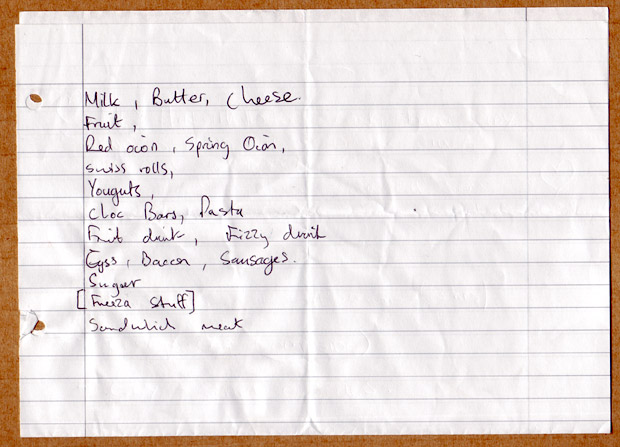 Milk, Butter, Cheese.
Fruit,
Red oion, Spring Oion,
Swiss rolls,
Youguts,
Cloc Bars, Pasta
Fruit drink, Fizzy drink
Eggs, Bacon, Sausages.
Suger
[Freeza stuff]
Sandwich meat